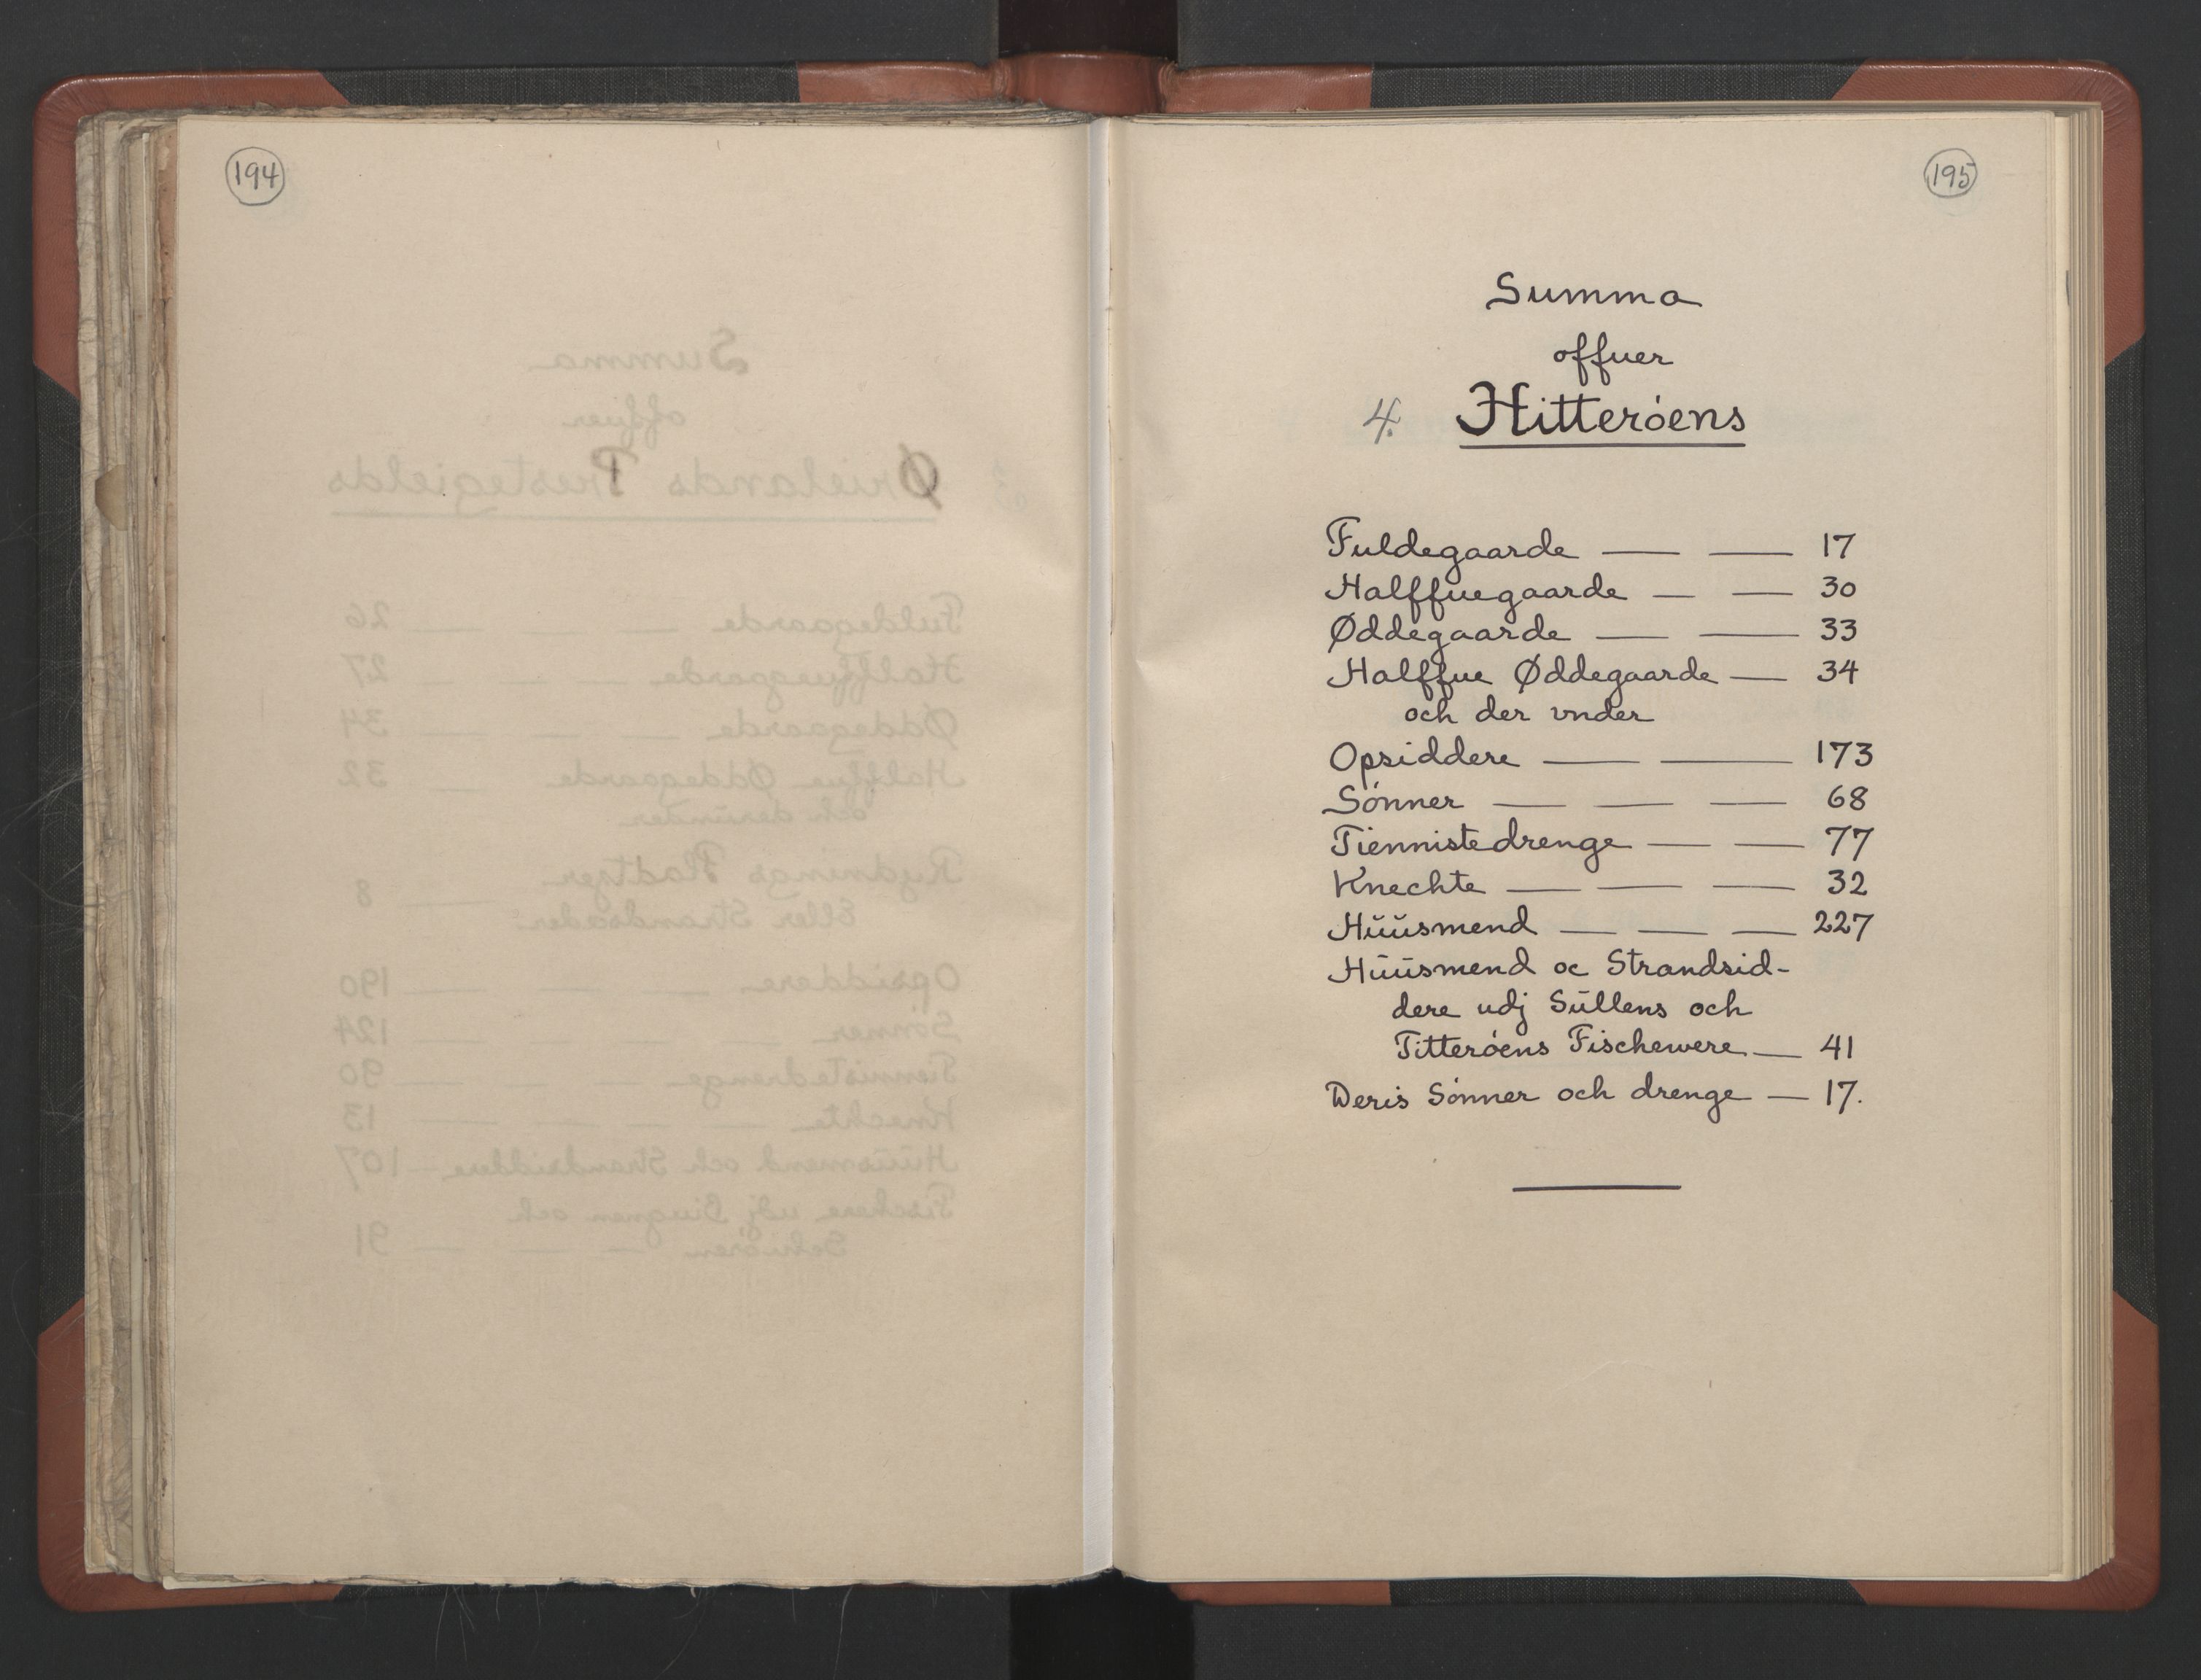 194
195
Summa
offuer
4. Hitteröens
Fuldegaarde — — 17
Halffuegaarde — — 30
Øddegaarde — — 33
Halffue Øddegaarde — 34
och der vnder
Opsiddere — — 173
Sönner — — — 68
Tiennistedrenge — — 77
Knechte — — — 32
Hüüsmend — — — 227
Hüüsmend oc Strandsid-
dere udj Süllens och
Titteröens Fischewere — 41
Deris Sönner och drenge — 17.